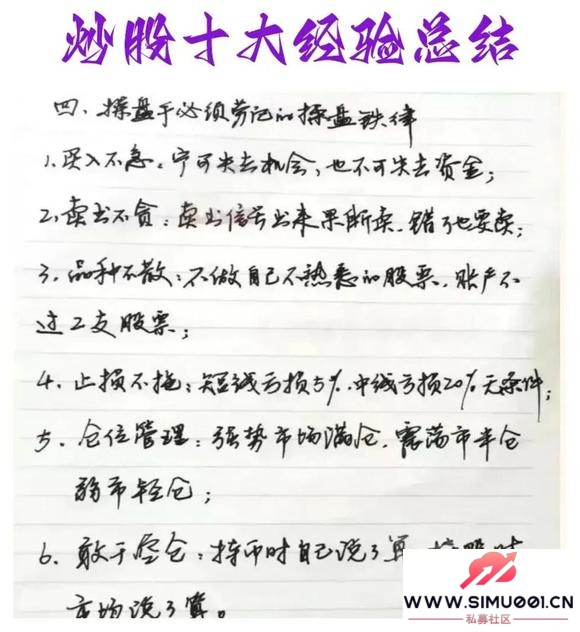 炒股十大经验总结
四、操盘手必须劳记的操盘铁律
1.买入不急：宁可失去机会，也不可失去资金；
2.卖出不贪：卖出信号出来果断卖，错了也要卖；
3.品种不散：不做自己不熟悉的股票，账户不
过2支股票；
4.止损不拖：短线亏损5%，中线亏损20%无条件；
5.仓位管理：强势市场满仓，震荡市半仓
弱市轻仓；
6.敢于空仓：持币时自己说了算，持股时
市场说了算。
WWW.SIMU001.CN
私募社区